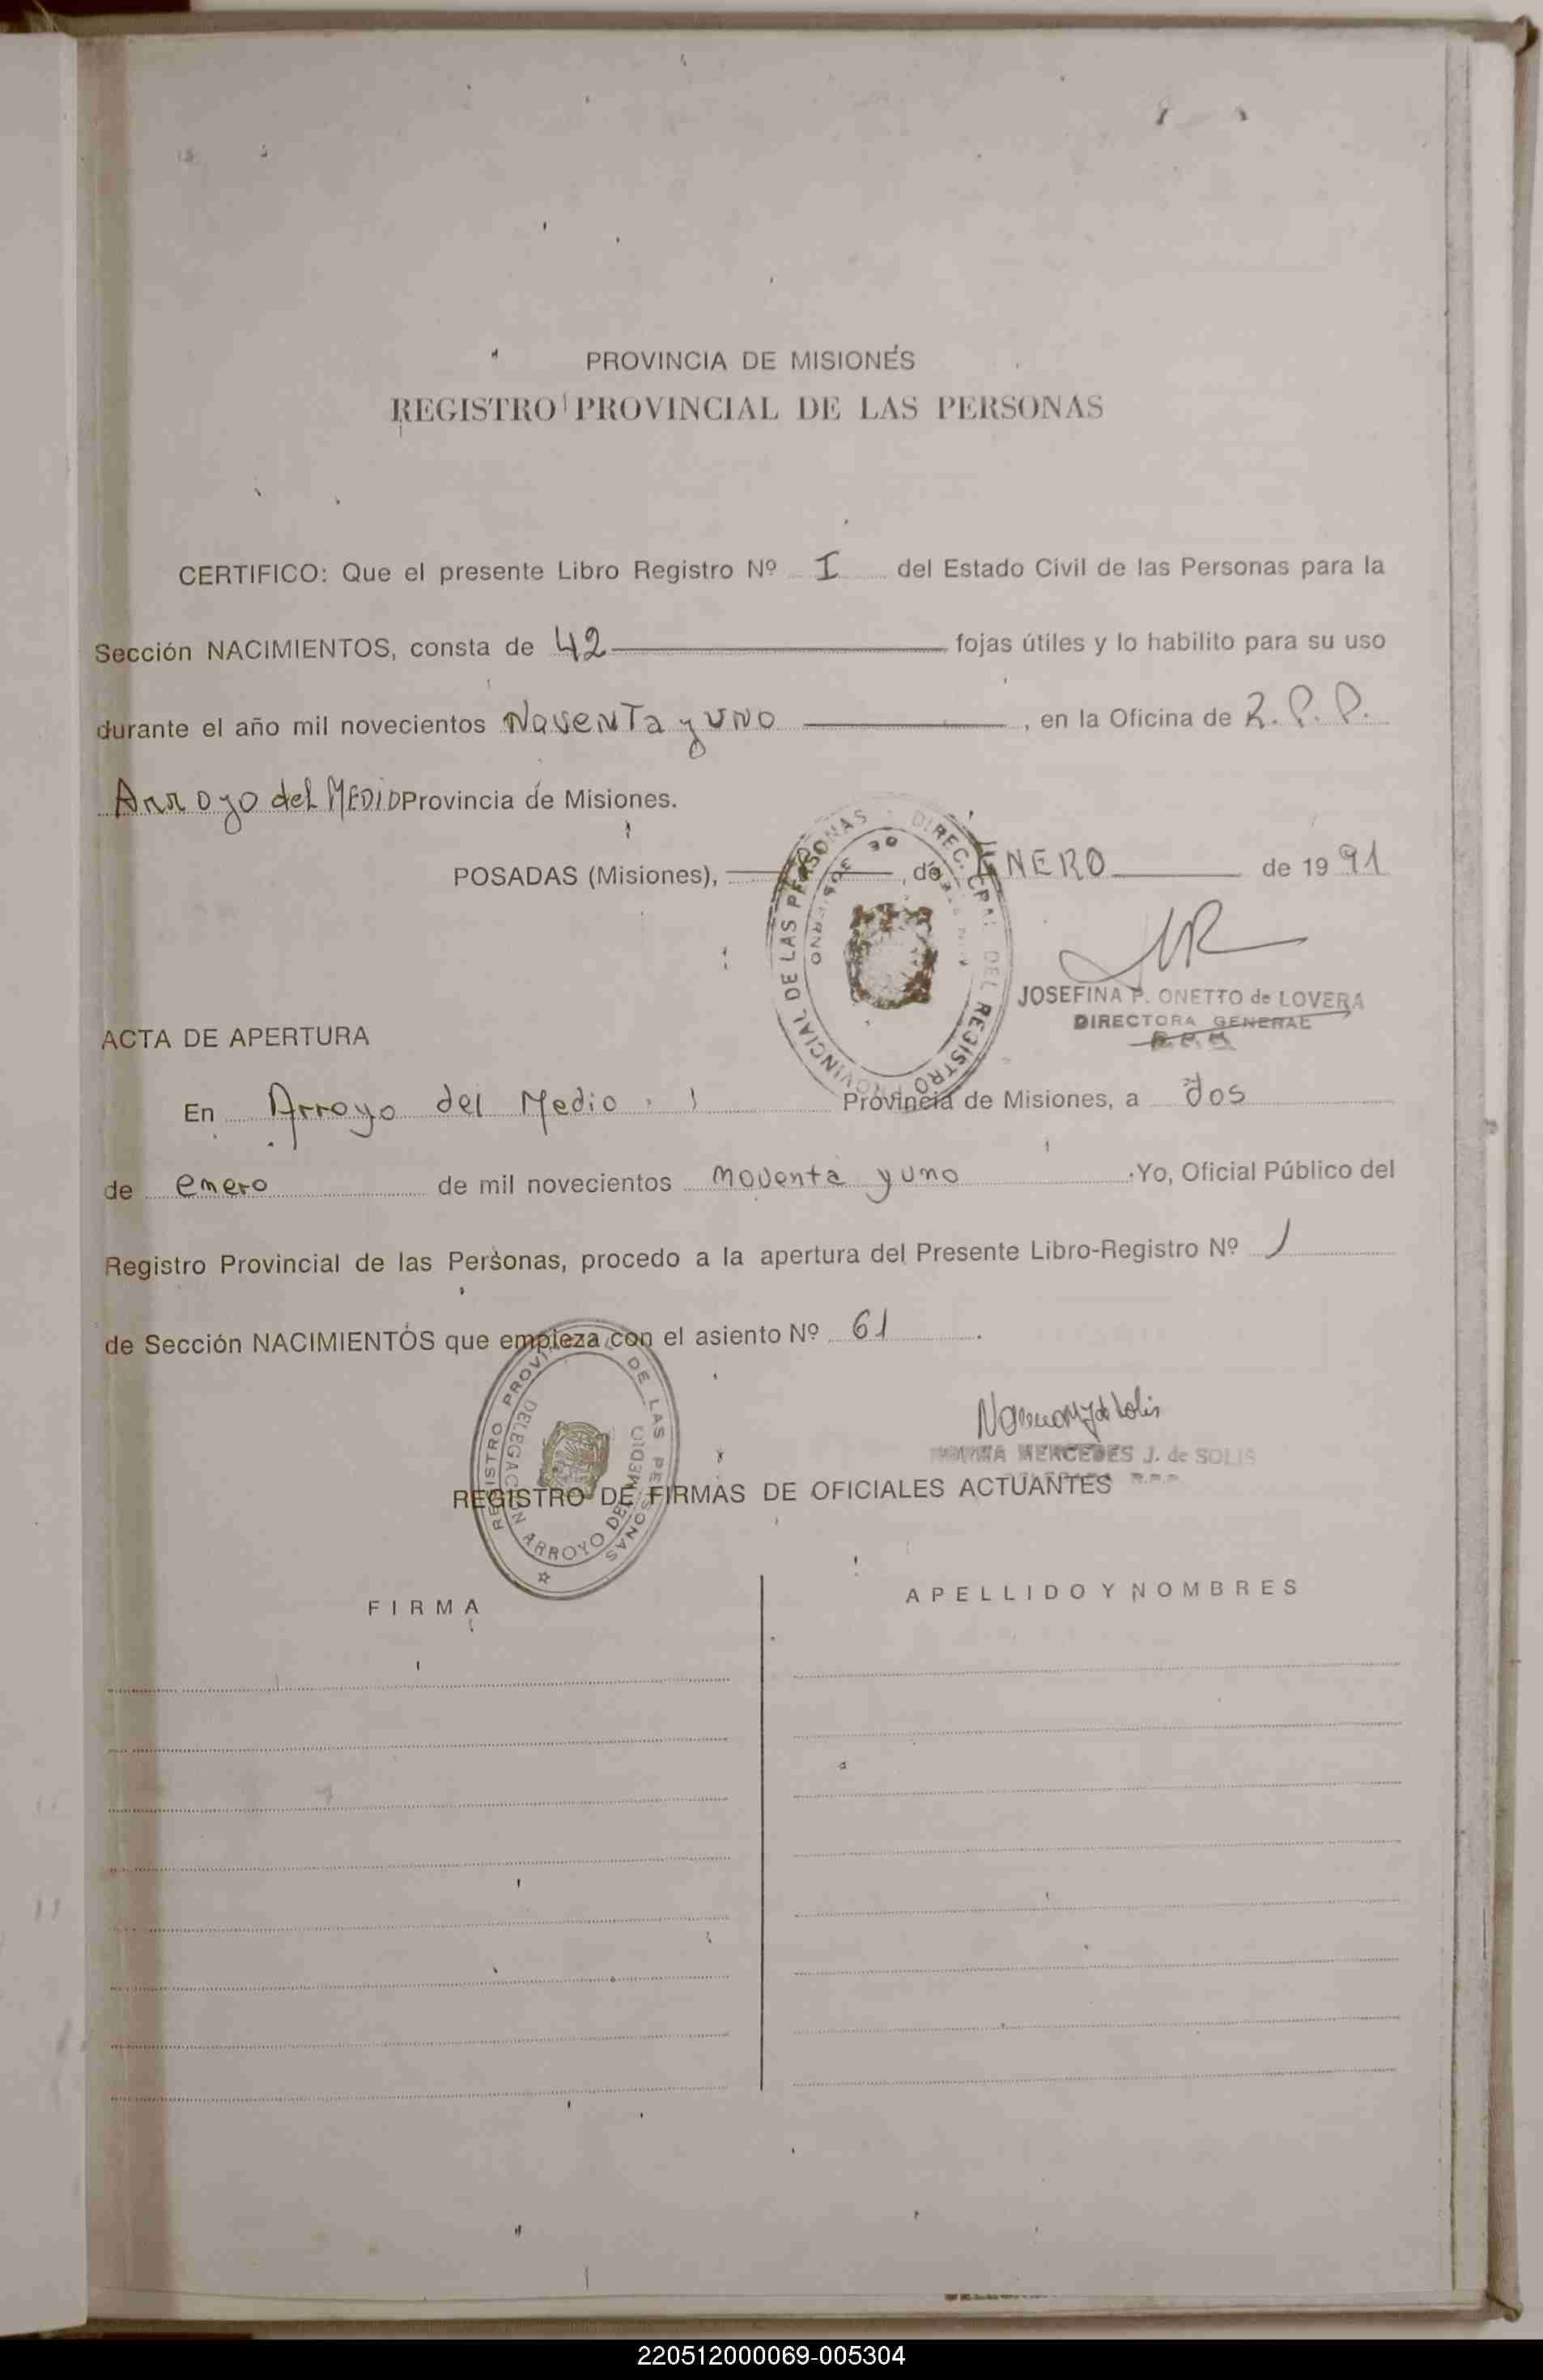 PROVINCIA DE MISIONES
REGISTRO PROVINCIAL DE LAS PERSONAS
CERTIFICO: Que el presente Libro Registro Nº I del Estado Civil de las Personas para la
Sección NACIMIENTOS, consta de 42 fojas útiles y lo habilito para su uso
durante el año mil novecientos Noventa y uno, en la Oficina de R.P.P.
Arroyo del MEDIO Provincia de Misiones.
POSADAS (Misiones), , de ENERO de 19 91
DIREC. GRAL. DEL REGISTRO PROVINCIAL DE LAS PERSONAS
JOSEFINA P. ONETTO de LOVERA
DIRECTORA GENERAL
ACTA DE APERTURA
En Arroyo del Medio Provincia de Misiones, a dos
de enero de mil novecientos noventa y uno . Yo, Oficial Público del
Registro Provincial de las Personas, procedo a la apertura del Presente Libro-Registro Nº 1
de Sección NACIMIENTOS que empieza con el asiento Nº 61 .
REGISTRO PROVINCIAL DE LAS PERSONAS
DELEGACION ARROYO DEL MEDIO
NORMA MERCEDES J. de SOLIS
REGISTRO DE FIRMAS DE OFICIALES ACTUANTES
FIRMA
APELLIDO Y NOMBRES
220512000069-005304